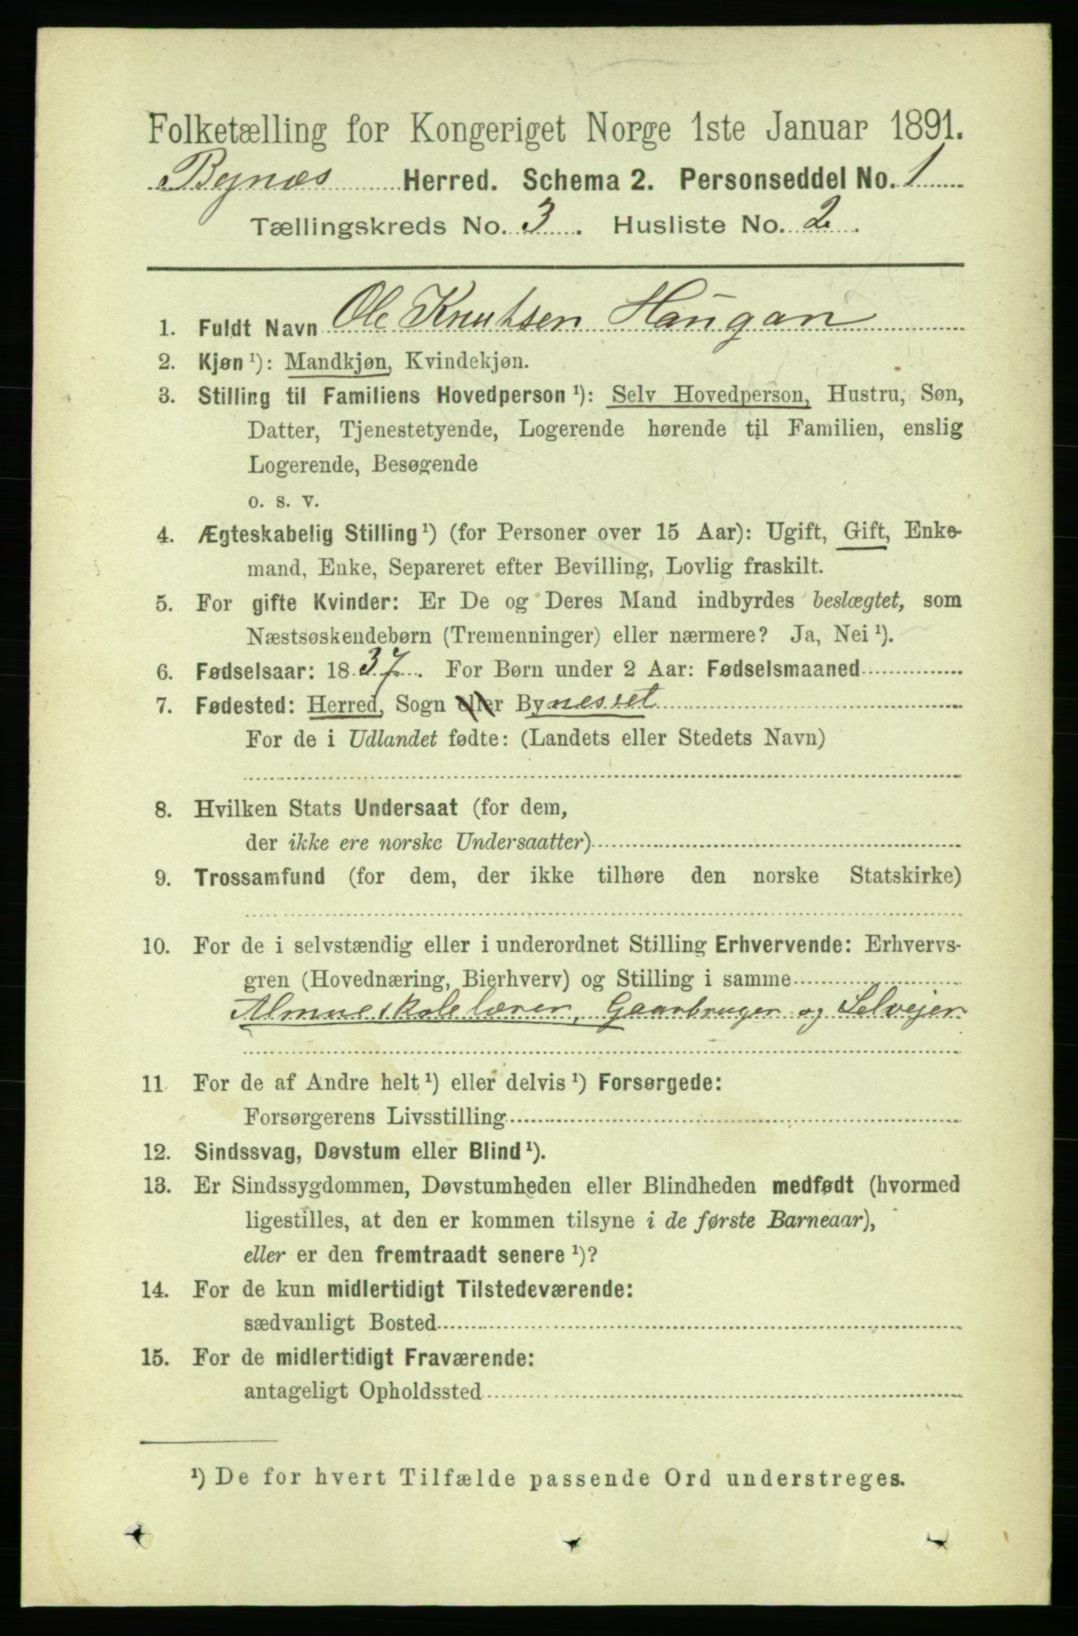 Folketælling for Kongeriget Norge 1ste Januar 1891.
Bynæs Herred. Schema 2. Personseddel No. 1
Tællingskreds No. 3. Husliste No. 2.
1. Fuldt Navn Ole Knutsen Haugan
2. Kjøn ¹): Mandkjøn, Kvindekjøn.
3. Stilling til Familiens Hovedperson ¹): Selv Hovedperson, Hustru, Søn,
Datter, Tjenestetyende, Logerende hørende til Familien, enslig
Logerende, Besøgende
o. s. v.
4. Ægteskabelig Stilling ¹) (for Personer over 15 Aar): Ugift, Gift, Enke-
mand, Enke, Separeret efter Bevilling, Lovlig fraskilt.
5. For gifte Kvinder: Er De og Deres Mand indbyrdes beslægtet, som
Næstsøskendebørn (Tremenninger) eller nærmere? Ja, Nei ¹).
6. Fødselsaar: 1837. For Børn under 2 Aar: Fødselsmaaned
7. Fødested: Herred, Sogn eller Bynesset
For de i Udlandet fødte: (Landets eller Stedets Navn)
8. Hvilken Stats Undersaat (for dem,
der ikke ere norske Undersaatter)
9. Trossamfund (for dem, der ikke tilhøre den norske Statskirke)
10. For de i selvstændig eller i underordnet Stilling Erhvervende: Erhvervs-
gren (Hovednæring, Bierhverv) og Stilling i samme
Almueskolelærer, Gaarbruger og Selvejer
11 For de af Andre helt ¹) eller delvis ¹) Forsørgede:
Forsørgerens Livsstilling
12. Sindssvag, Døvstum eller Blind ¹).
13. Er Sindssygdommen, Døvstumheden eller Blindheden medfødt (hvormed
ligestilles, at den er kommen tilsyne i de første Barneaar),
eller er den fremtraadt senere ¹)?
14. For de kun midlertidigt Tilstedeværende:
sædvanligt Bosted
15. For de midlertidigt Fraværende:
antageligt Opholdssted
¹) De for hvert Tilfælde passende Ord understreges.